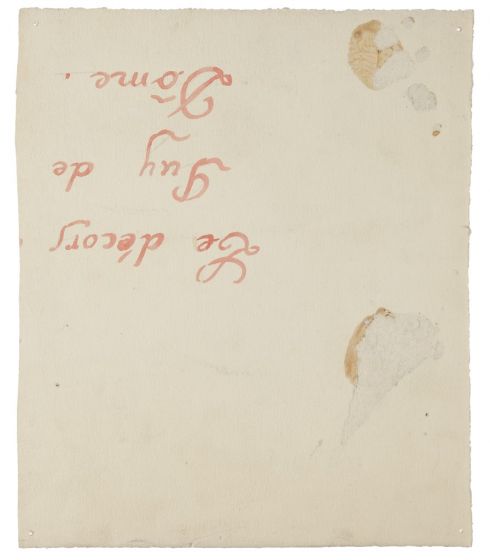 Le décors
Puy de
Dôme.